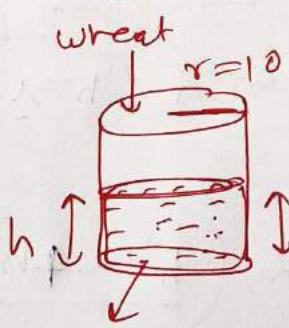 wheat
r=10
h